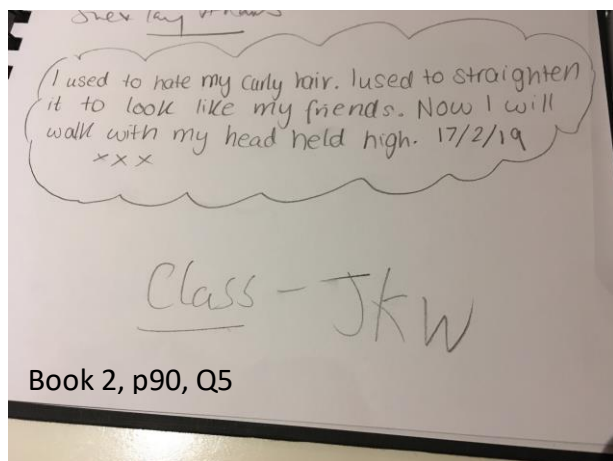 I used to hate my curly hair. I used to straighten
it to look like my friends. Now I will
walk with my head held high. 17/2/19
xxx
Class - JKW
Book 2, p90, Q5